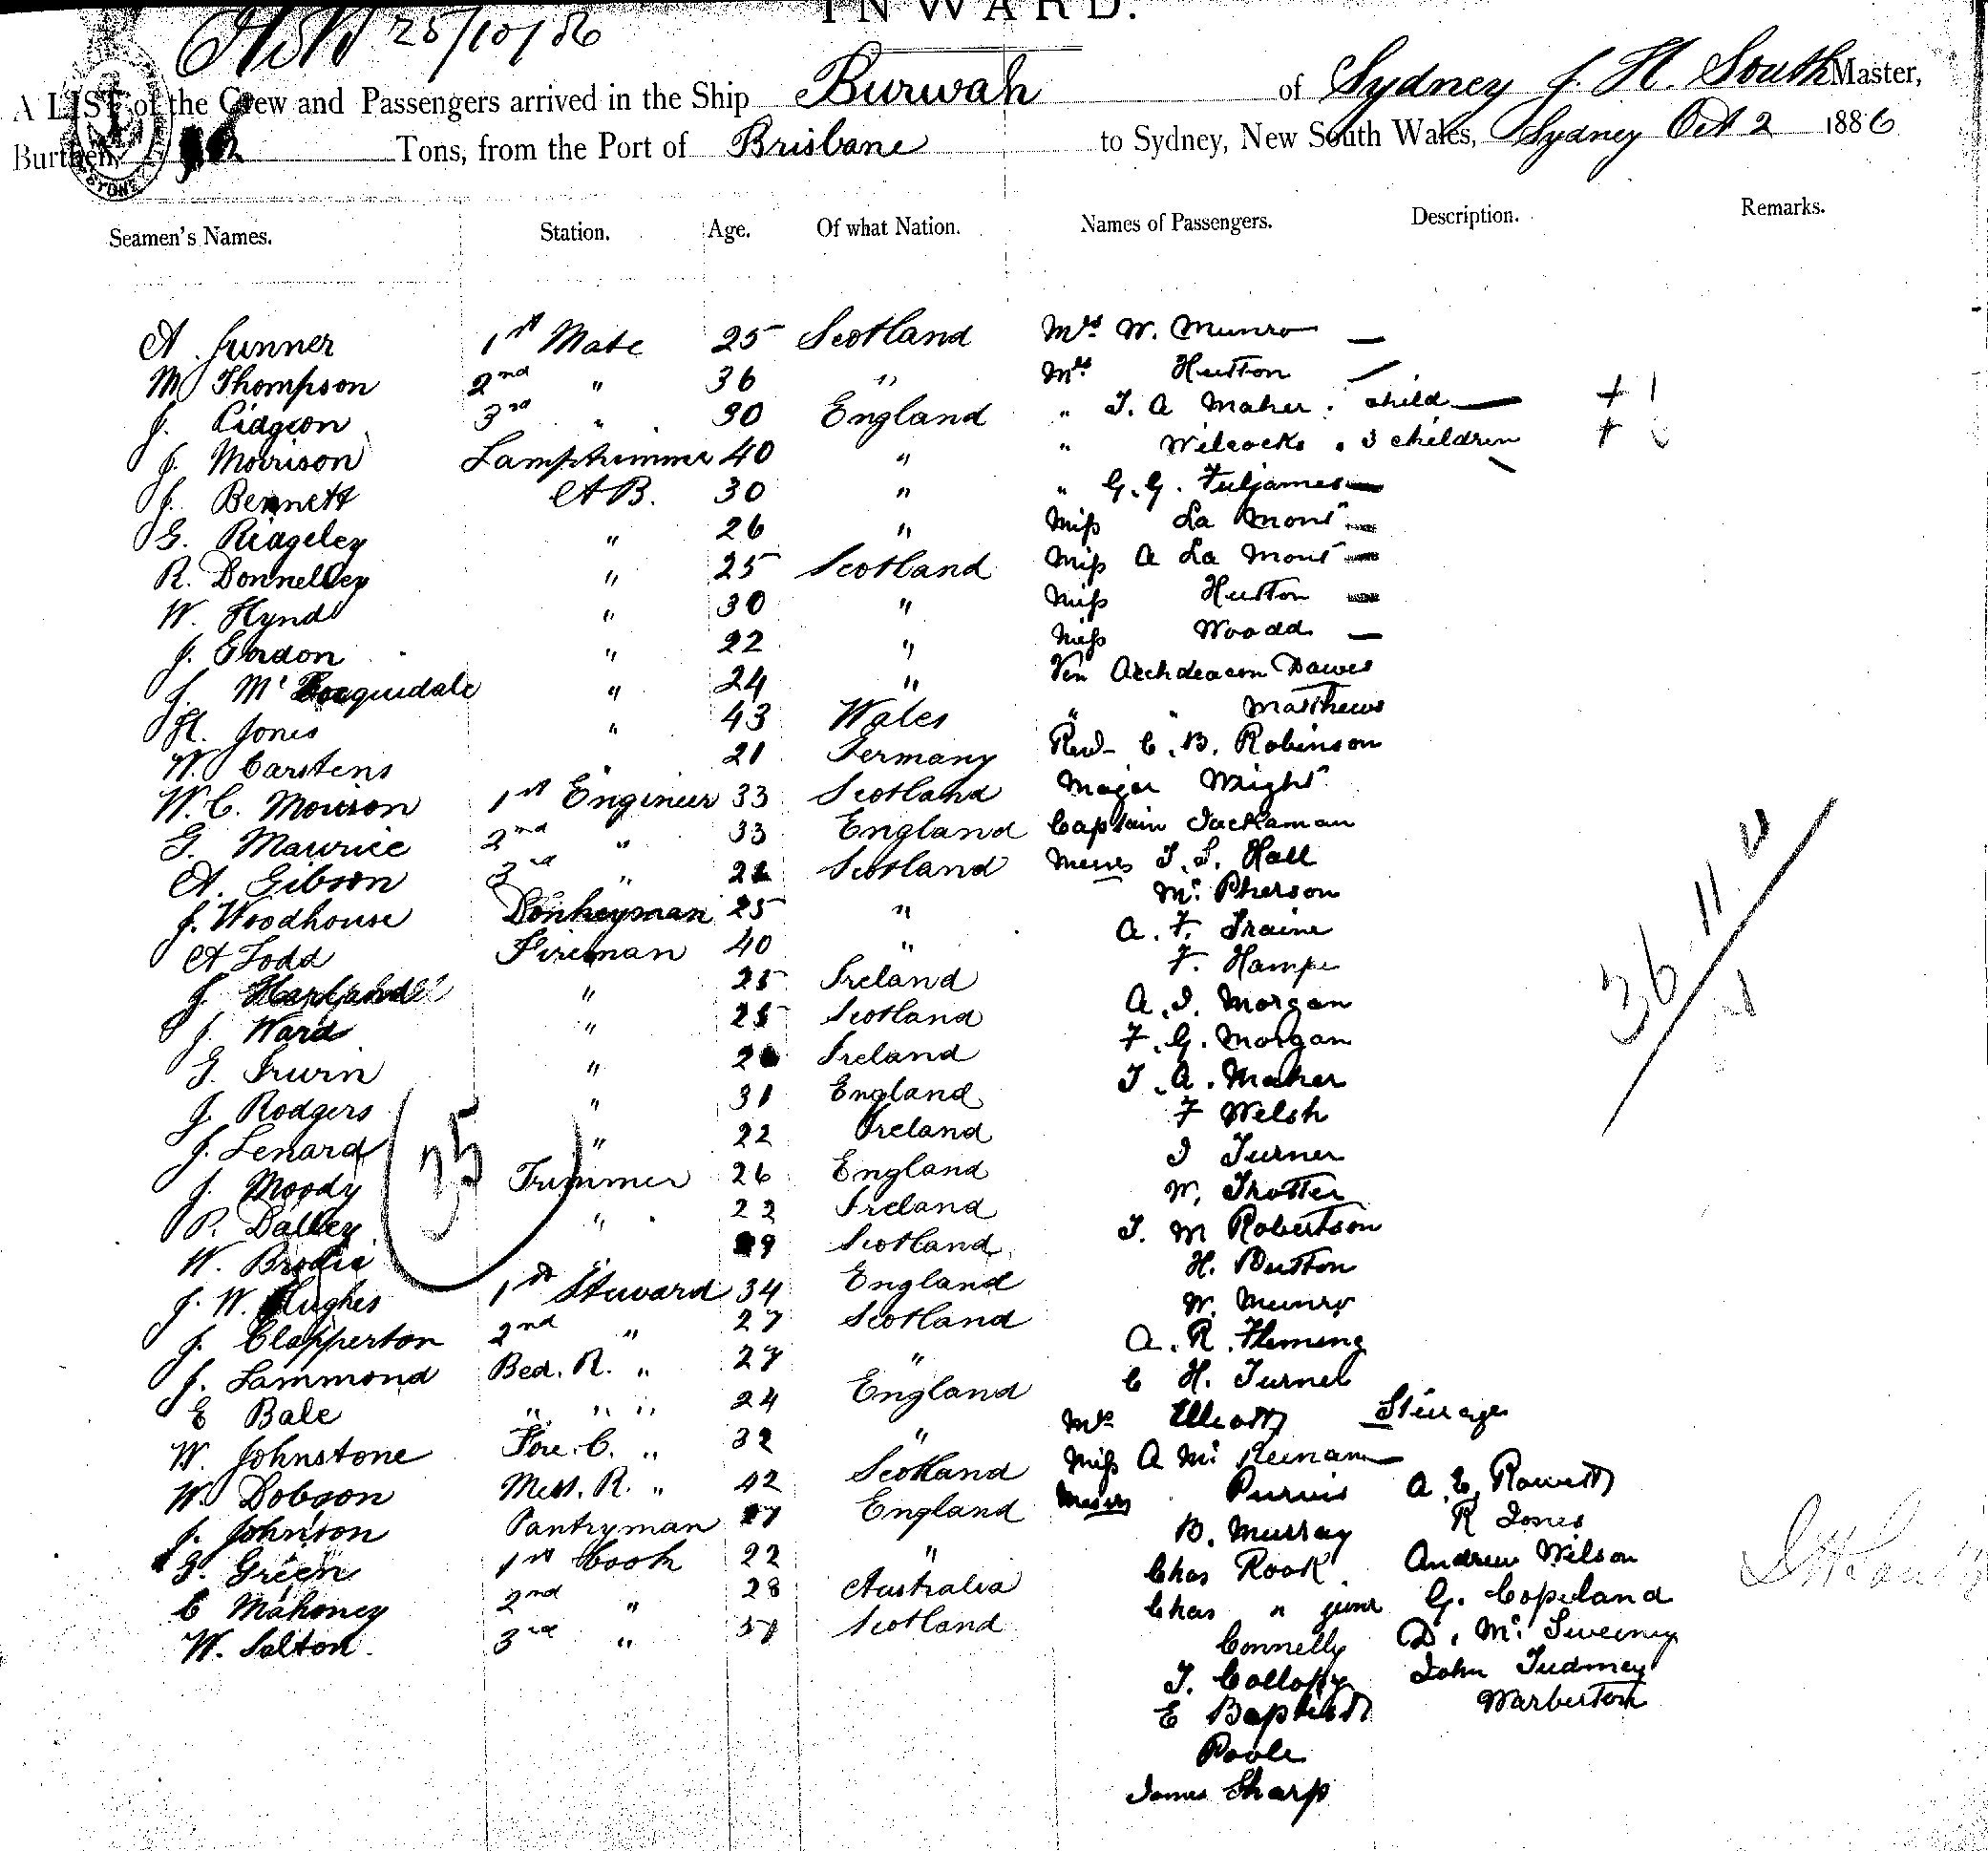 INWARD.
25/10/86
A LIST of the Crew and Passengers arrived in the Ship Burwah of Sydney J. H. South Master,
Burthen Tons, from the Port of Brisbane to Sydney, New South Wales, Sydney Oct 2 1886
Seamen's Names. Station. Age. Of what Nation. Names of Passengers. Description. Remarks.
A. Gunner 1st Mate 25 Scotland Mrs W. Munro —
M Thompson 2nd " 36 " Mrs Hutton
J. Pidgeon 3rd " 30 England " T. A Maher . child — + 1
J. Morrison Lamptrimmer 40 " " Wilcocks . 3 children +
J. Bennett A B. 30 " " G. G. Fuljames —
G. Ridgeley " 26 " Miss La Mont —
R. Donnelley " 25 Scotland Miss A La Mont —
W. Hynd " 30 " Miss Hutton —
J. Gordon " 22 " Miss Woodd —
J. Mc " 24 " Ven Archdeacon Dawes
H. Jones " 43 Wales " " Matthews
W. Carstens " 21 Germany Revd C. B. Robinson
W. C. Morrison 1st Engineer 33 Scotland Major Wright
G. Maurice 2nd " 33 England Captain Jackaman
A. Gibson 3rd " Scotland Messrs T. S. Hall
J. Woodhouse Donkeyman 25 " Mc Pherson
A Todd Fireman 40 " A. F. Traine
J. " 25 Ireland F. Hampe
J. Ward " 25 Scotland A. I. Morgan
G. Irwin " Ireland F. G. Morgan
J. Rodgers " 31 England T. A. Maher
J. Lenard " 22 Ireland F Welsh
J. Moody Trimmer 26 England I Turner
P. Dalley " 22 Ireland W. Trotter
W. Brodie Scotland T. M Robertson
J. W. Hughes 1st Steward 34 England H. Dutton
J. Clapperton 2nd " 27 Scotland W. Munro
J. Lammond Bed. R. " 27 " A. R. Fleming
E Bale " " " 24 England C H. Turner
W. Johnstone Fore. C. " 32 " Mrs Elliott Steerage
W. Dobson Mess. R. " 42 Scotland Miss A Mc Keenan
J. Johnson Pantryman England Messrs Purvis A. E. Rowett
G. Green 1st Cook 22 " B. Murray R Jones
C Mahoney 2nd " 28 Australia Chas Rook Andrew Wilson
W. Salton. 3rd " Scotland Chas " junr G. Copeland
Connelly D. Mc Sweeney
T. Collopy John Tudmey
E Baptist Warberton
Poole
James Sharp
35
36 11